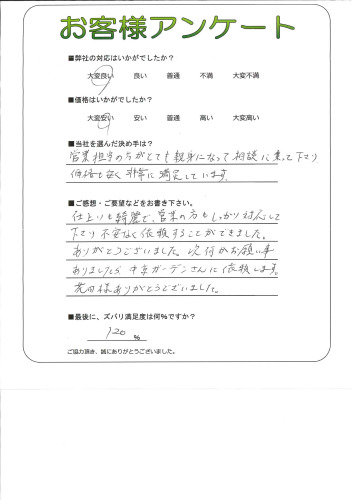 お客様アンケート
■弊社の対応はいかがでしたか？
大変良い 良い 普通 不満 大変不満
■価格はいかがでしたか？
大変安い 安い 普通 高い 大変高い
■当社を選んだ決め手は？
営業担当の方がとても親身になって相談に乗って下さり
価格も安く非常に満足しています。
■ご感想・ご要望などをお書き下さい。
仕上りも綺麗で、営業の方もしっかり対応して
下さり不安なく依頼することができました。
ありがとうございました。次何かお願い事
ありましたら中京ガーデンさんに依頼します。
様ありがとうございました。
■最後に、ズバリ満足度は何％ですか？
120 %
ご協力頂き、誠にありがとうございました。